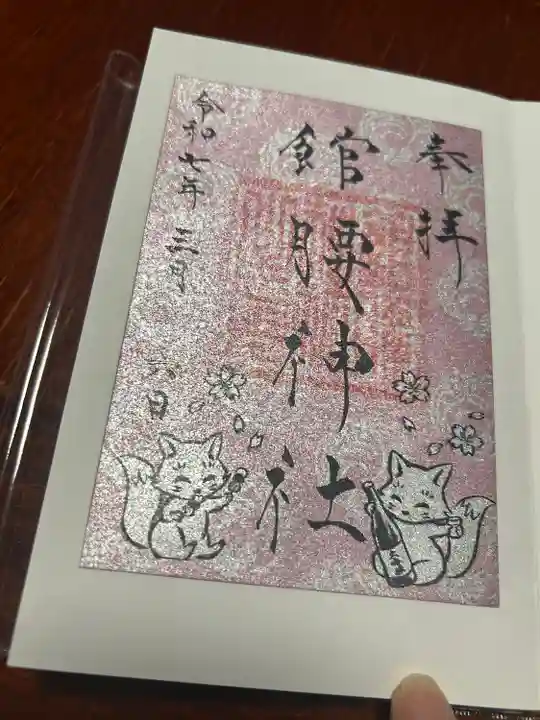 奉拝
館腰神社
令和七年三月六日